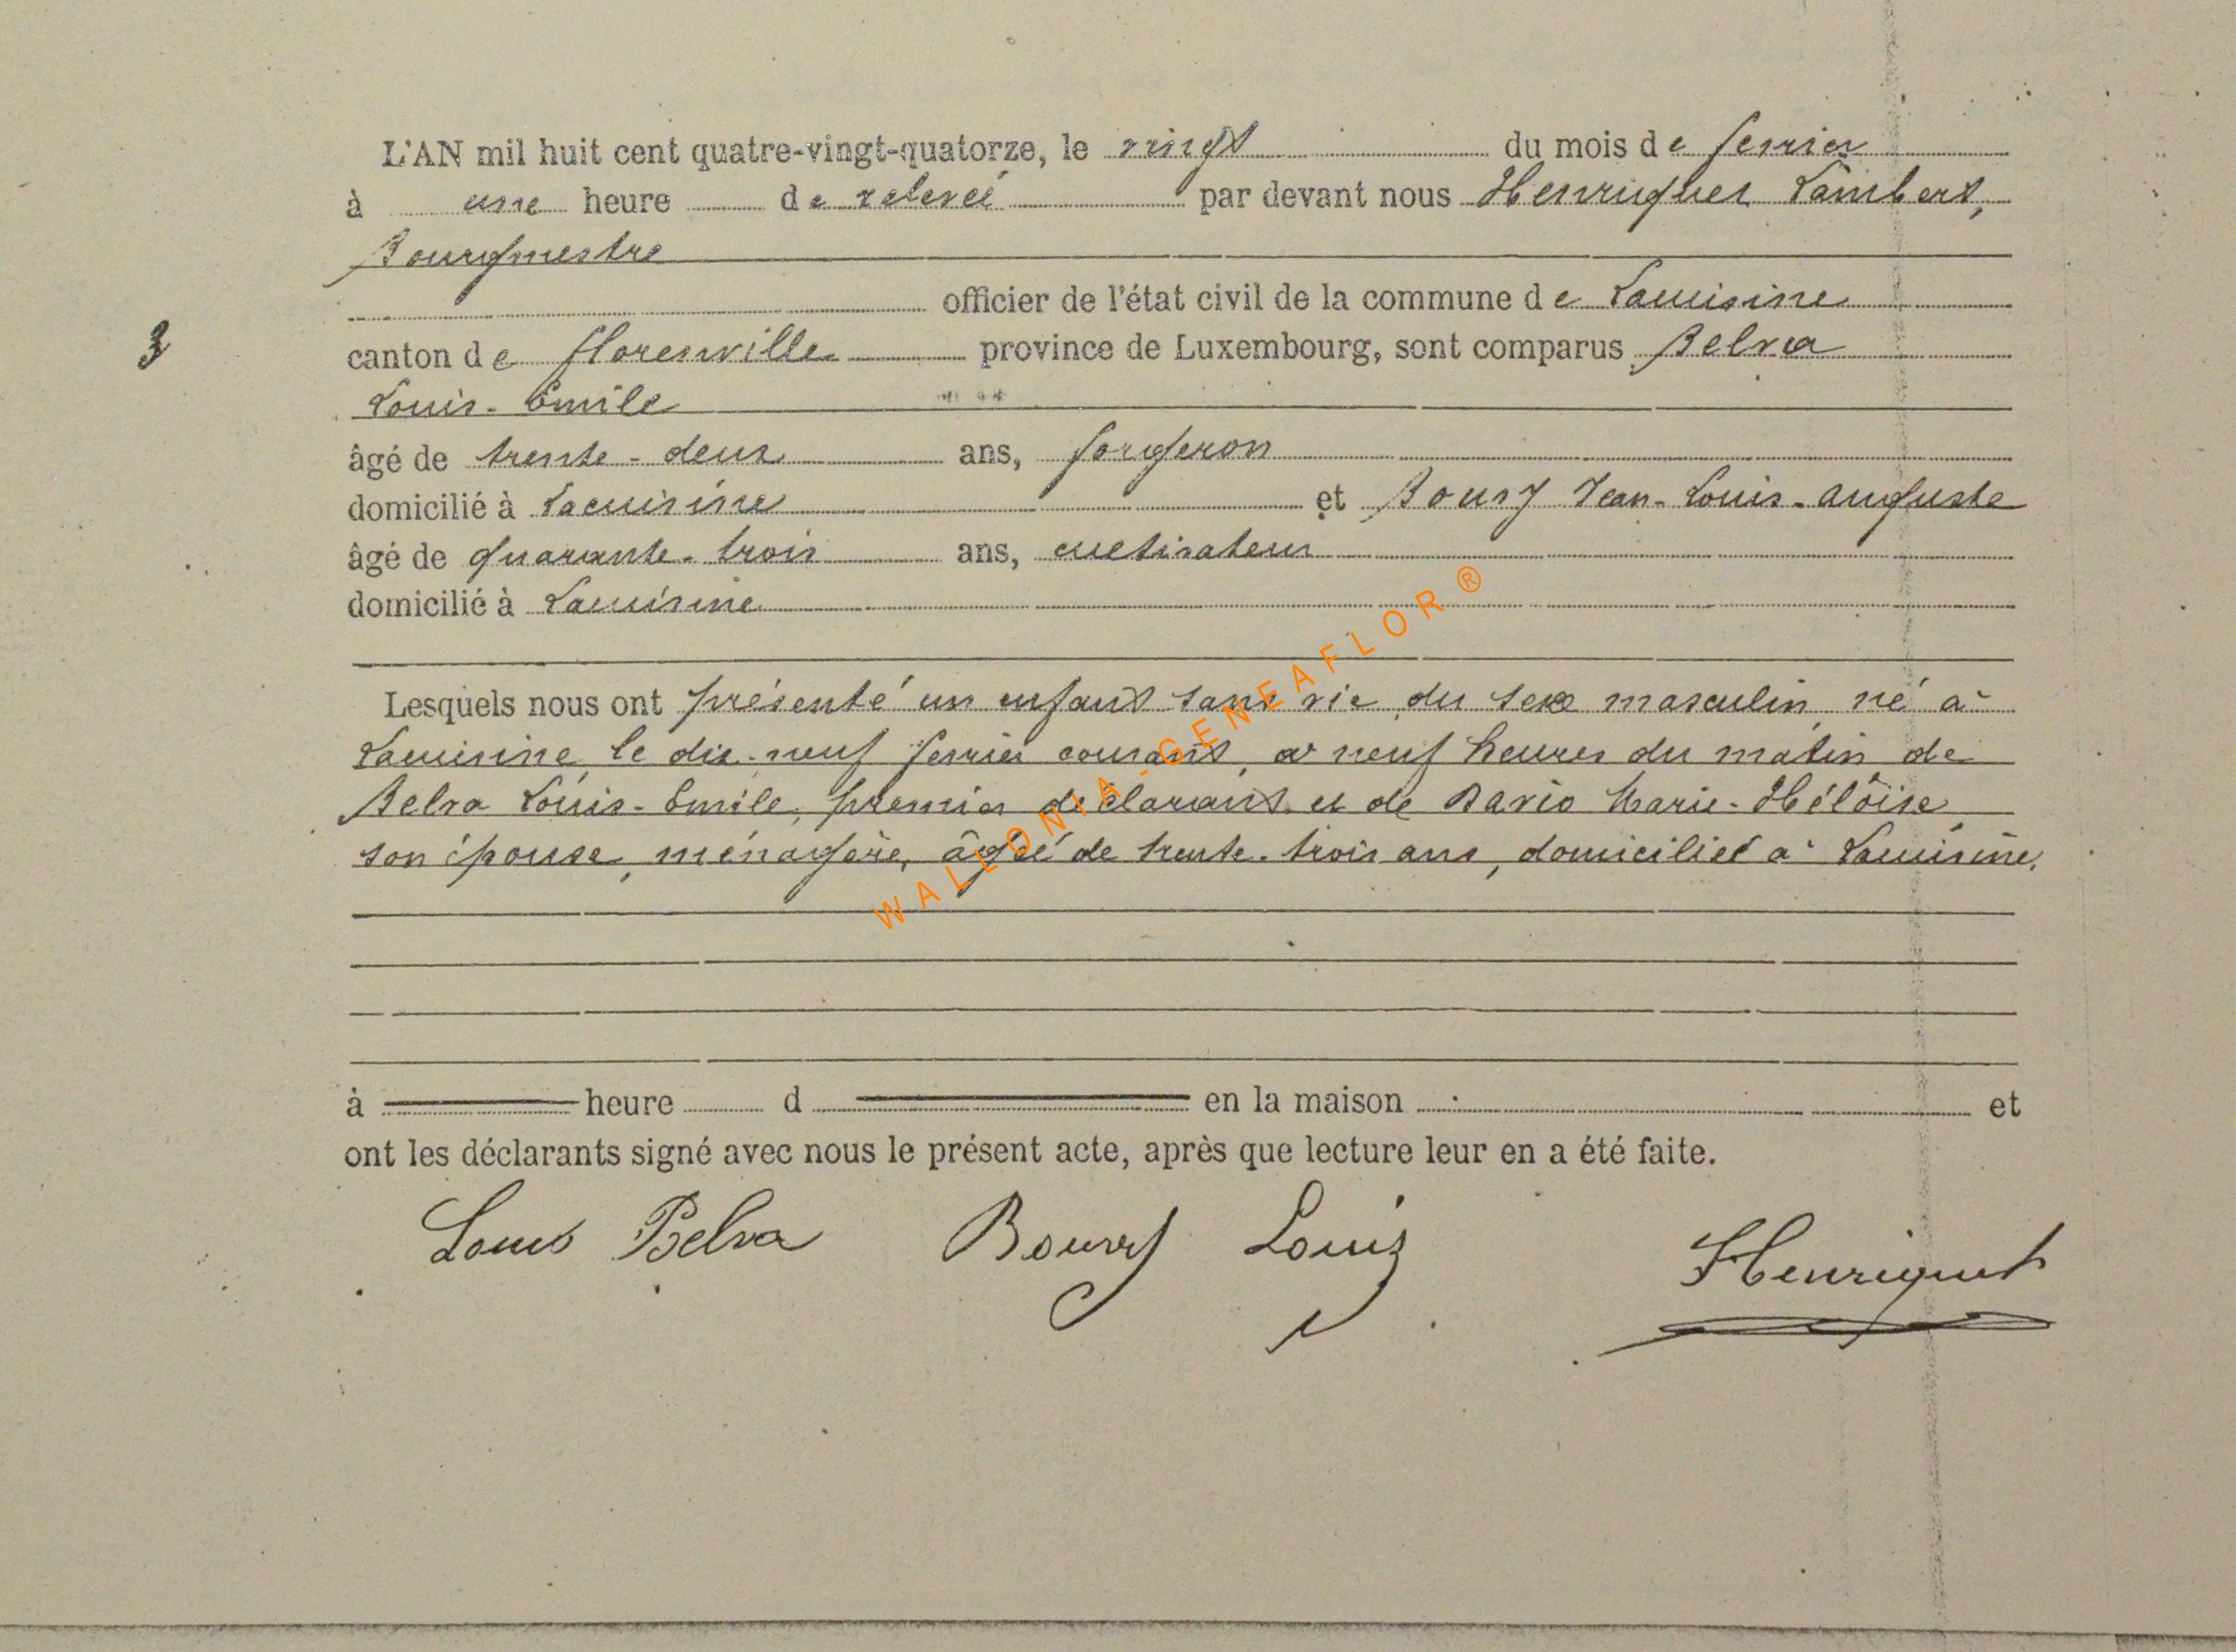 L'AN mil huit cent quatre-vingt-quatorze, le vingt du mois de fevrier
à une heure de relevée par devant nous Henriquet Lambert,
Bourgmestre
officier de l'état civil de la commune de Lacuisine
3
canton de florenville province de Luxembourg, sont comparus Belva
Louis-Emile
âgé de trente-deux ans, forgeron
domicilié à Lacuisine et Boury Jean-Louis-auguste
âgé de quarante-trois ans, cultivateur
domicilié à Lacuisine
Lesquels nous ont présenté un enfant sans vie, du sexe masculin, né à
Lacuisine, le dix-neuf fevrier courant, à neuf heures du matin de
Belva Louis-Emile, premier déclarant et de Davio Marie-Héloïse,
son épouse, ménagère, âgée de trente-trois ans, domiciliés à Lacuisine.
WALLONIA-GENEAFLOR®
à heure d en la maison et
ont les déclarants signé avec nous le présent acte, après que lecture leur en a été faite.
Louis Belva Boury Louis Henriquet